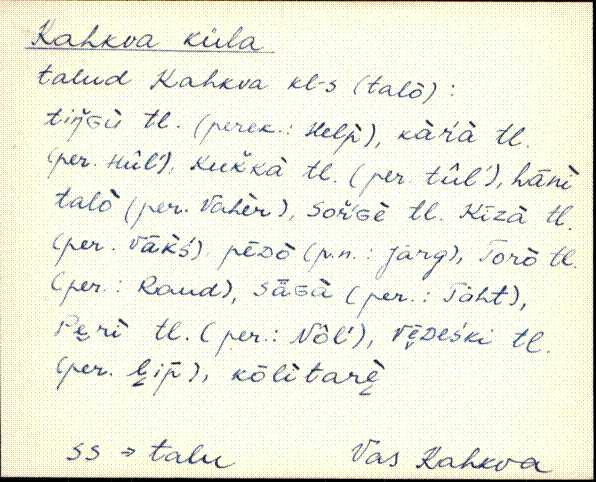 Kahkva küla
talud Kahkva kl-s (talò) :
tiŋ̆Gù tl. (perek.: Help̀), kàŕà tl.
(per. Hûĺ), kuk̆kà tl. (per. tûĺ), hānì
talò (per. Vahèr), soř́Gè tl. Kīzà tl.
(per. Väkś) pēDò (p.n.: Järg), Torò tl.
(per.: Raud), sāGà (per.: Täht),
Pe̮rì tl. (per.: Nôĺ), vē̮Deśki tl.
(per. l̬ip̄), kōlìtarè̮
ss ⇒ talu Vas Kahkva